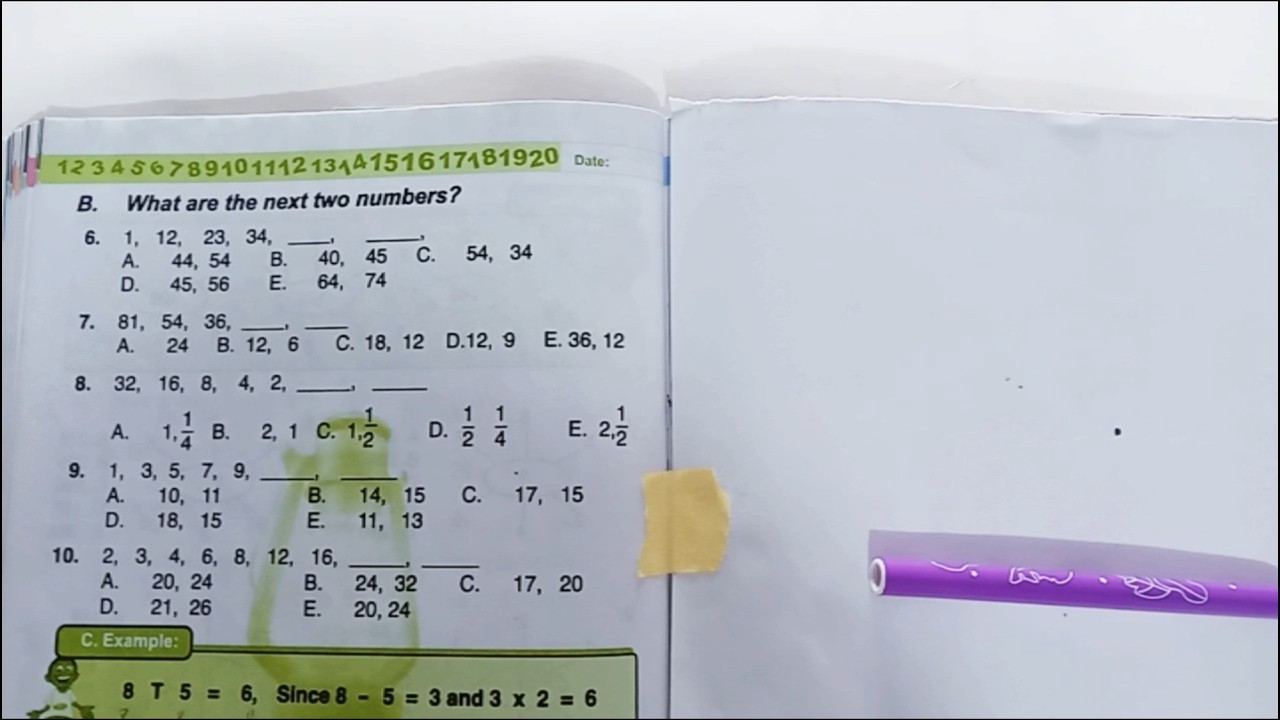 1 2 3 4 5 6 7 8 9 10 11 12 13 14 15 16 17 18 19 20 Date:
B. What are the next two numbers?
6. 1, 12, 23, 34, ____, ____,
A. 44, 54 B. 40, 45 C. 54, 34
D. 45, 56 E. 64, 74
7. 81, 54, 36, ____, ____
A. 24 B. 12, 6 C. 18, 12 D.12, 9 E. 36, 12
8. 32, 16, 8, 4, 2, ____, ____
A. 1, 1/4 B. 2, 1 C. 1, 1/2 D. 1/2 1/4 E. 2, 1/2
9. 1, 3, 5, 7, 9, ____, ____
A. 10, 11 B. 14, 15 C. 17, 15
D. 18, 15 E. 11, 13
10. 2, 3, 4, 6, 8, 12, 16, ____, ____
A. 20, 24 B. 24, 32 C. 17, 20
D. 21, 26 E. 20, 24
C. Example:
8 T 5 = 6, Since 8 - 5 = 3 and 3 x 2 = 6